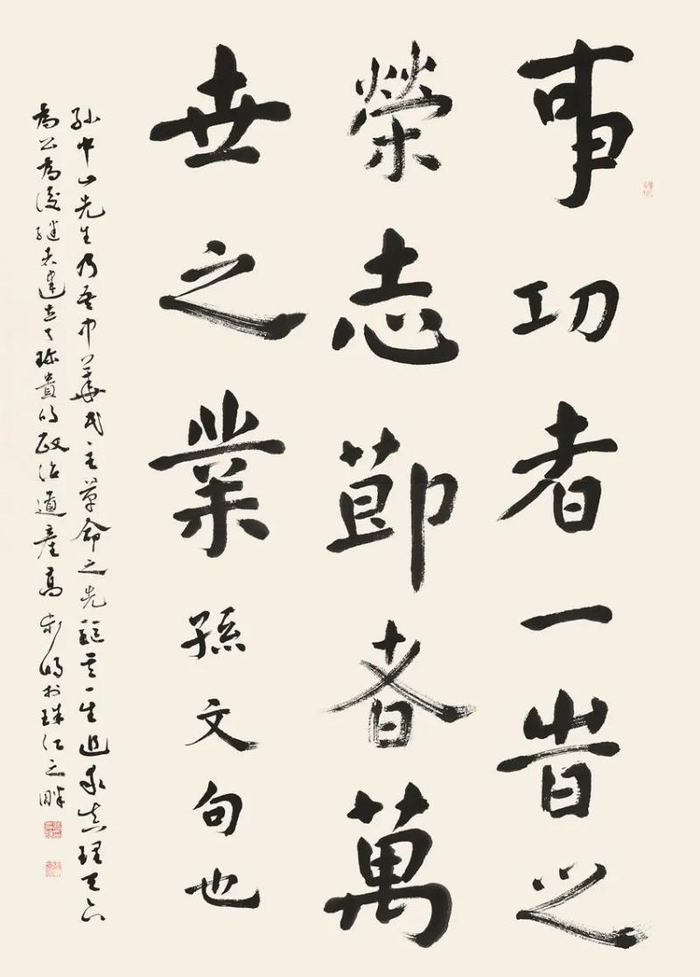 事功者一旹之
榮志節者萬
世之業孫文句也
孙中山先生乃吾中華民主革命之先驅其一生追求真理天下
為公為後繼者建立了珍貴的政治遺產高於珠江之畔